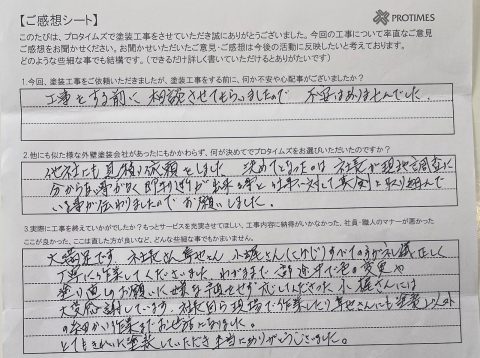 【ご感想シート】
PROTIMES
このたびは、プロタイムズで塗装工事をさせていただき誠にありがとうございました。今回の工事について率直なご意見
ご感想をお聞かせください。お聞かせいただいたご意見・ご感想は今後の活動に反映したいと考えております。
どのような些細な事でも結構です。(できるだけ詳しく書いていただけるとありがたいです)
1.今回、塗装工事をご依頼いただきましたが、塗装工事をする前に、何か不安や心配事がございましたか?
工事をする前に相談させてもらいましたので 不安はありませんでした。
2.他にも似た様な外壁塗装会社があったにもかかわらず、何が決めてでプロタイムズをお選びいただいたのですか?
他社にも見積り依頼をしました 決めてとなったのは 社長が現地調査に
分からない事がなく 即 が出来る事と 仕事に対して真面目に取り組んで
いる事が伝わりましたのでお願いしました。
3.実際に工事を終えていかがでしたか?もっとサービスを充実させてほしい、工事内容に納得がいかなかった、社員・職人のマナーが悪かった
ここが良かった、ここは直した方が良いなど、どんな些細な事でもかまいません。
大満足です。社長さん 小堀さん すべての方が礼儀正しく
丁寧に作業してくださいました。わがままで 途中で色の変更や
塗り直しのお願いに嫌な顔せず 応じてくださった 小堀さんには
大変感謝しています。社長自ら現場で作業したり さんにも塗装以外
の 作業までお世話になりました。
とてもきれいに塗装していただき本当にありがとうございました。